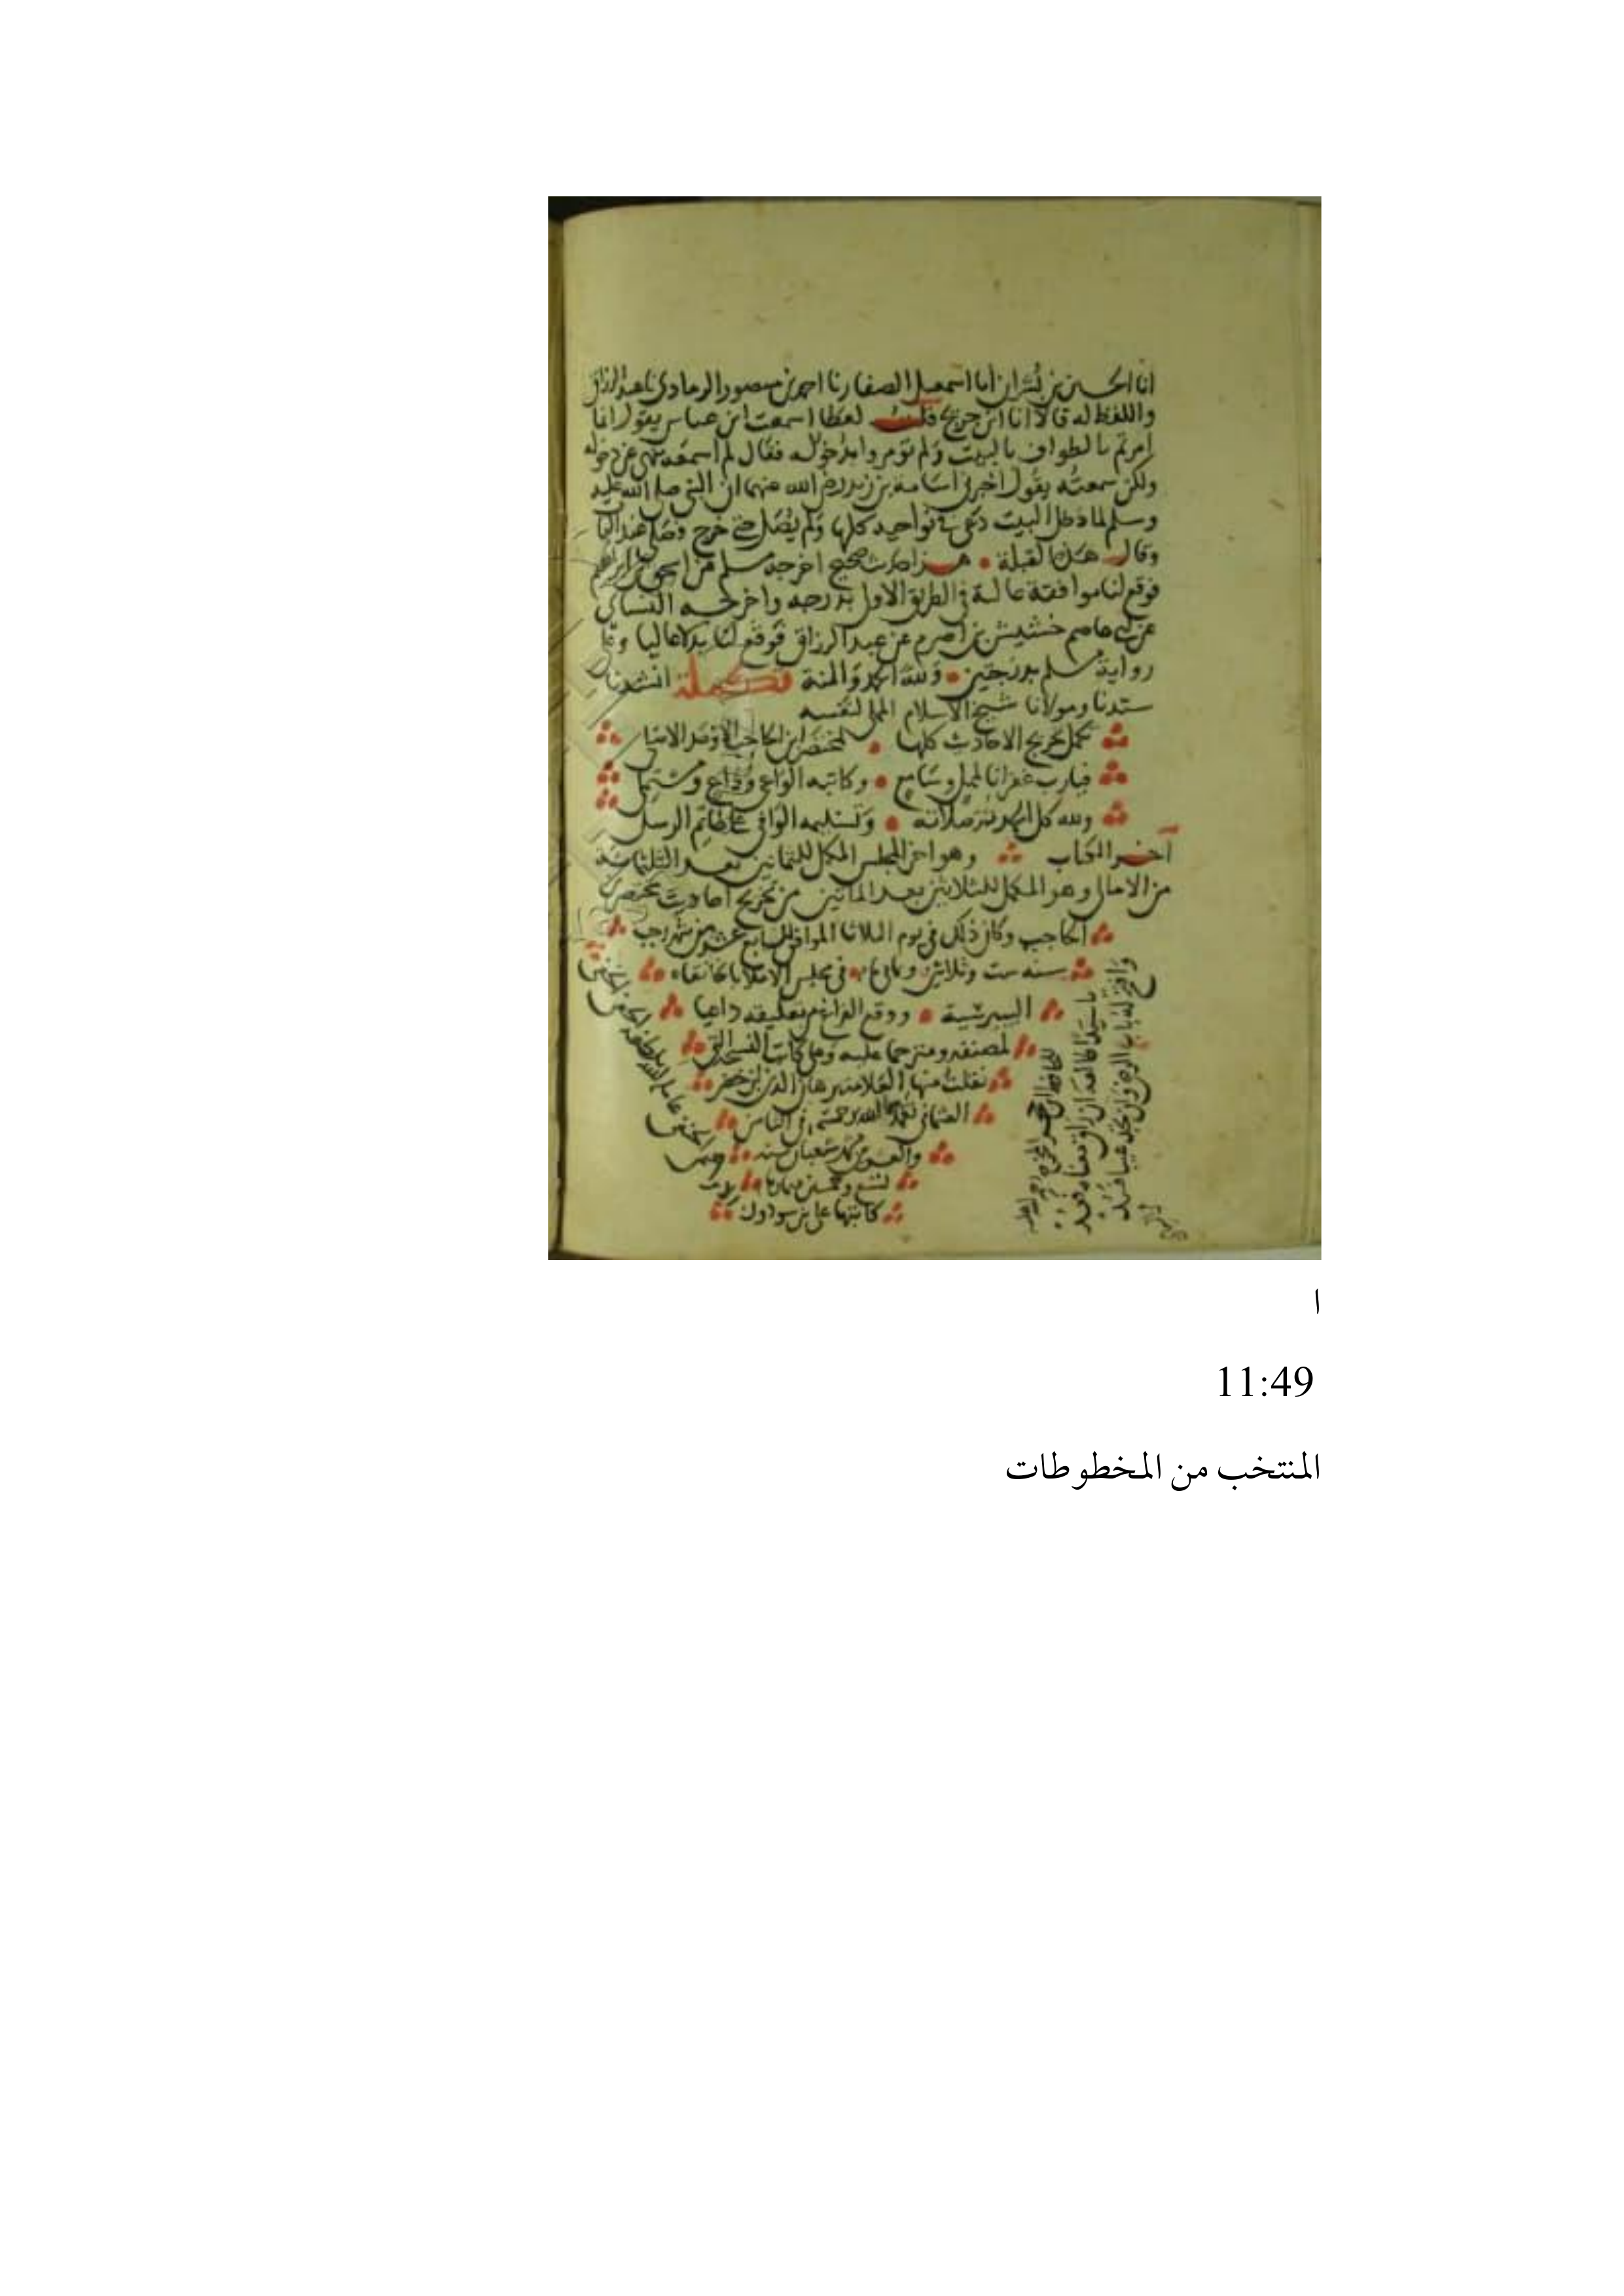 انا الحسين بن بشران انا اسمعيل الصفار نا احمد بن منصور الرمادي نا عبد الرزاق
واللفظ له قالا انا ابن جريج قلت لعطا اسمعت ابن عباس يقول انما
امرتم بالطواف بالبيت ولم تومروا بدخوله فقال لم اسمعه نهى عن دخوله
ولكن سمعته يقول اخبرني اسامة بن زيد رضي الله عنهما ان النبي صلى الله عليه
وسلم لما دخل البيت دعى في نواحيه كلها ولم يصل حتى خرج وصلى عند الباب
وقال هذه القبلة هذا حديث صحيح اخرجه مسلم من اسحق بن ابراهيم
فوقع لنا موافقة عالية في الطريق الاول بدرجه واخرجه النسائي
عن ابي عاصم خشيش بن اصرم عن عبد الرزاق فوقع لنا بدلا عاليا وعلى
رواية مسلم بدرجتين ولله الحمد والمنة تكملة انشدنا
سيدنا ومولانا شيخ الاسلام المملي لنفسه
تكمل تخريج الاحاديث كلها لمختصر ابن الحاجب الاوحد
فيارب غفرانا لممل وسامع وكاتبه الواعي وداع ومستمل
ولله كل الحمد ثم صلاته وتسليمه الوافي على خاتم الرسل
آخر الكتاب وهو اخر المجلس المكمل للثمانين بعد الثلثماية
من الامالي وهو المكمل للثلاثين بعد الماتين من تخريج احاديث مختصر ابن
الحاجب وكان ذلك في يوم الثلاثا الموافق للسابع عشر من شهر رجب
سنة ست وثلاثين وثماني ماية في مجلس الاملا بالخانقاه
البيبرسية ووقع الفراغ من تعليقه داعيا
لمصنفه ومترحما عليه وعلى كاتب النسخة التي
نقلت منها العلامة برهان الدين بن خضر
العثماني تغمده الله برحمته في الثامن
والعشرين من شعبان سنة
تسع وخمسين وثمانماية
كاتبها علي بن سودون
ا
11:49
المنتخب من المخطوطات